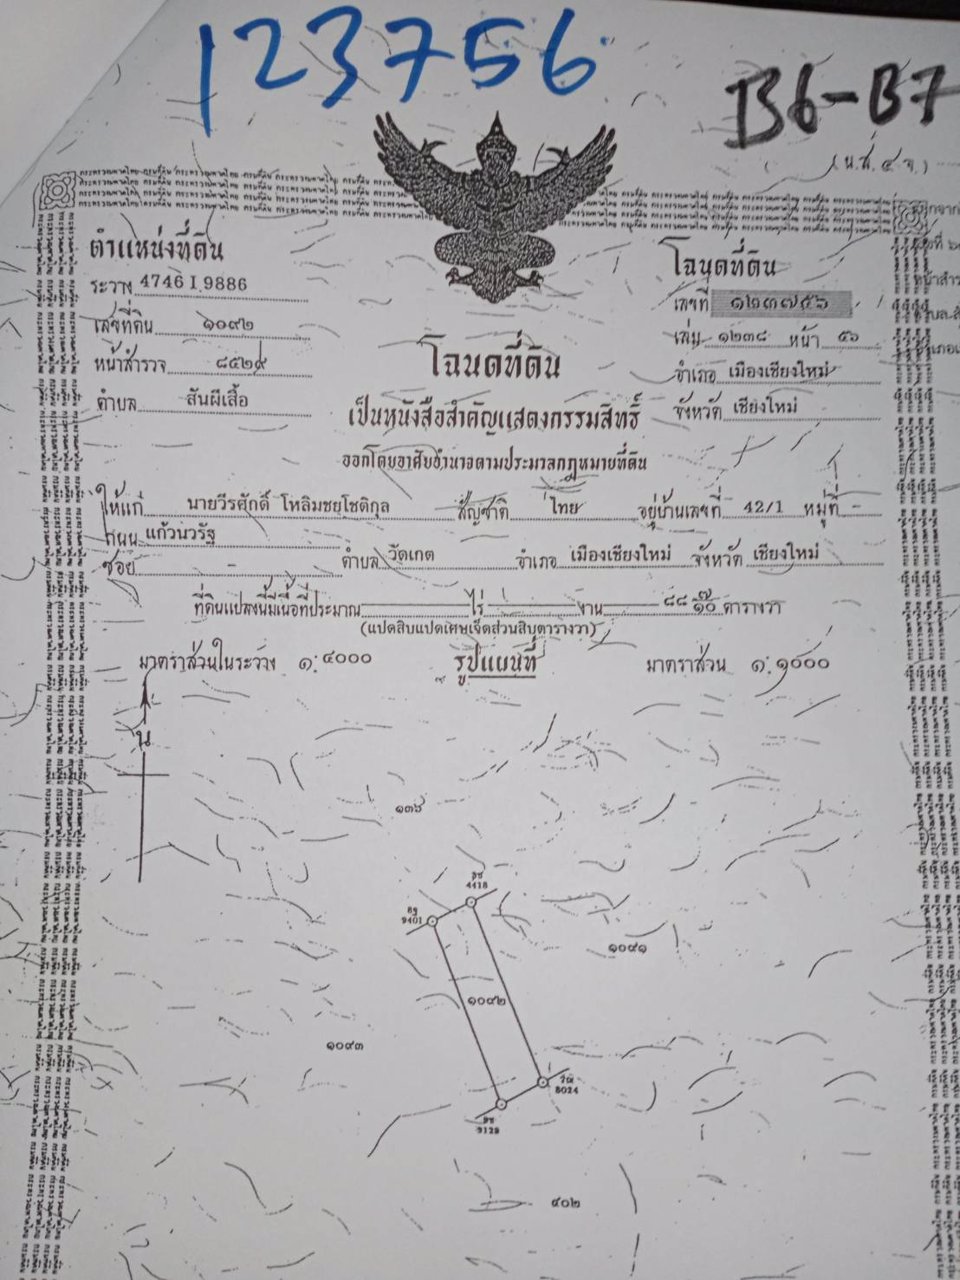 123756
B6-B7
(น.ส. ๔ จ.)
ตำแหน่งที่ดิน
ระวาง 4746 I 9886
เลขที่ดิน ๑๐๙๒
หน้าสำรวจ ๘๕๒๙
ตำบล สันผีเสื้อ
โฉนดที่ดิน
เลขที่ ๑๒๓๗๕๖
เล่ม ๑๒๓๘ หน้า ๕๖
อำเภอ เมืองเชียงใหม่
จังหวัด เชียงใหม่
โฉนดที่ดิน
เป็นหนังสือสำคัญแสดงกรรมสิทธิ์
ออกโดยอาศัยอำนาจตามประมวลกฎหมายที่ดิน
ให้แก่ นายวีรศักดิ์ โหลิมชยโชติกุล สัญชาติ ไทย อยู่บ้านเลขที่ 42/1 หมู่ที่ -
ถนน แก้วนวรัฐ
ซอย - ตำบล วัดเกต อำเภอ เมืองเชียงใหม่ จังหวัด เชียงใหม่
ที่ดินแปลงนี้มีเนื้อที่ประมาณ ไร่ งาน ๘๘ ๗/๑๐ ตารางวา
(แปดสิบแปดเศษเจ็ดส่วนสิบตารางวา)
มาตราส่วนในระวาง ๑:๔๐๐๐ รูปแผนที่ มาตราส่วน ๑:๑๐๐๐
น
๑๓๖
4418
9401
๑๐๙๑
๑๐๙๒
๑๐๙๓
8024
9129
๔๐๒